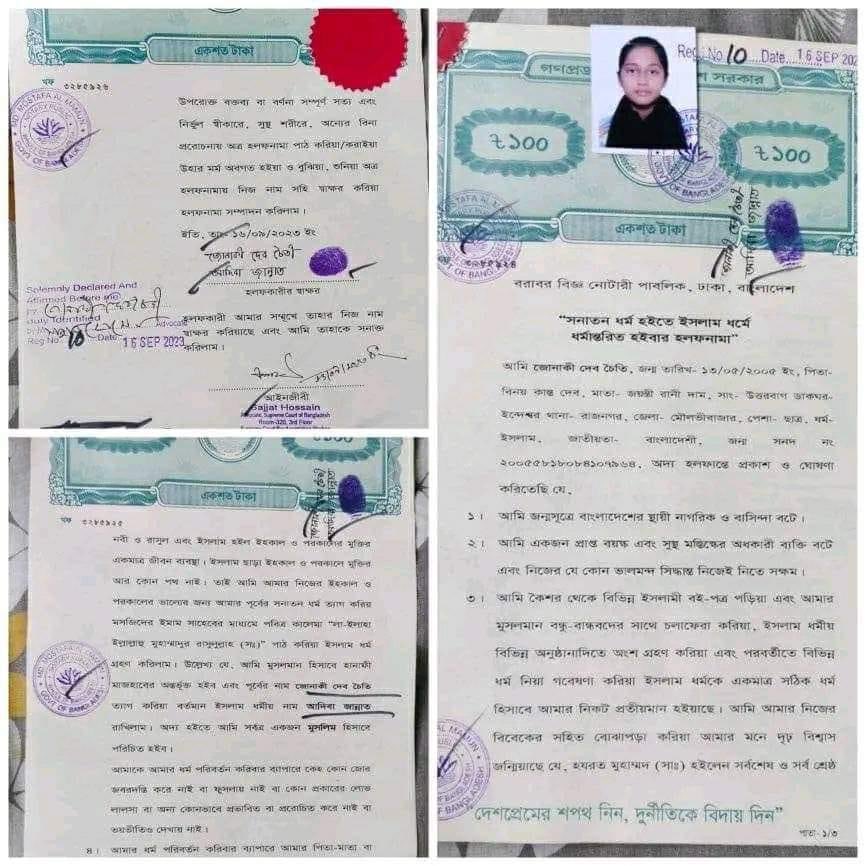 একশত টাকা
খফ ৩২৫৫৯২৬
উপরোক্ত বক্তব্য বা বর্ণনা সম্পূর্ণ সত্য এবং
নির্ভুল স্বীকারে, সুস্থ শরীরে, অন্যের বিনা
প্ররোচনায় অত্র হলফনামা পাঠ করিয়া/করাইয়া
উহার মর্ম অবগত হইয়া ও বুঝিয়া, শুনিয়া অত্র
হলফনামায় নিজ নাম সহি স্বাক্ষর করিয়া
হলফনামা সম্পাদন করিলাম।
ইতি, তাং- ১৬/০৯/২০২৩ ইং
জোনাকী দেব চৈতী
আদিবা জান্নাত
হলফকারীর স্বাক্ষর
Solemnly Declared And
Affirmed Before me
Advocate
Reg No 10 Date 16 SEP 2023
হলফকারী আমার সম্মুখে তাহার নিজ নাম
স্বাক্ষর করিয়াছে এবং আমি তাহাকে সনাক্ত
করিলাম।
আইনজীবী
Sajjat Hossain
Advocate, Supreme Court of Bangladesh
Room-320, 3rd Floor
একশত টাকা
খফ ৩২৫৫৯২৫
জোনাকী দেব চৈতী
আদিবা জান্নাত
নবী ও রাসুল এবং ইসলাম হইল ইহকাল ও পরকালের মুক্তির
একমাত্র জীবন ব্যবস্থা। ইসলাম ছাড়া ইহকাল ও পরকালে মুক্তির
আর কোন পথ নাই। তাই আমি আমার নিজের ইহকাল ও
পরকালের ভালোর জন্য আমার পূর্বের সনাতন ধর্ম ত্যাগ করিয়
মসজিদের ইমাম সাহেবের মাধ্যমে পবিত্র কালেমা "লা-ইলাহা
ইল্লাল্লাহু মুহাম্মাদুর রাসুলুল্লাহ (সাঃ)" পাঠ করিয়া ইসলাম ধর্ম
গ্রহণ করিলাম। উল্লেখ্য যে, আমি মুসলমান হিসাবে হানাফী
মাজহাবের অন্তর্ভূক্ত হইব এবং পূর্বের নাম জোনাকী দেব চৈতি
ত্যাগ করিয়া বর্তমান ইসলাম ধর্মীয় নাম আদিবা জান্নাত
রাখিলাম। অদ্য হইতে আমি সর্বত্র একজন মুসলিম হিসাবে
পরিচিত হইব।
আমাকে আমার ধর্ম পরিবর্তন করিবার ব্যাপারে কেহ কোন জোর
জবরদস্তি করে নাই বা ফুসলায় নাই বা কোন প্রকারের লোভ
লালসা বা অন্য কোনভাবে প্রভাবিত বা প্ররোচিত করে নাই বা
ভয়ভীতিও দেখায় নাই।
৪। আমার ধর্ম পরিবর্তন করিবার ব্যাপারে আমার পিতা-মাতা বা
Reg. No 10 Date 16 SEP 202
৳১০০
৳১০০
একশত টাকা
জোনাকী দেব চৈতী
আদিবা জান্নাত
৩২৫৫৯২৪
বরাবর বিজ্ঞ নোটারী পাবলিক, ঢাকা, বাংলাদেশ
"সনাতন ধর্ম হইতে ইসলাম ধর্মে
ধর্মান্তরিত হইবার হলফনামা"
আমি জোনাকী দেব চৈতি, জন্ম তারিখ- ১৩/০৫/২০০৫ ইং, পিতা-
বিনয় কান্ত দেব, মাতা- জয়ন্তী রানী দাম, সাং- উত্তরবাগ ডাকঘর-
ইন্দেশ্বর থানা- রাজনগর, জেলা- মৌলভীবাজার, পেশা- ছাত্র, ধর্ম-
ইসলাম, জাতীয়তা- বাংলাদেশী, জন্ম সনদ নং
২০০৫৫৮১৮০৮৪১০৭৯৬৪, অদ্য হলফান্তে প্রকাশ ও ঘোষণা
করিতেছি যে,
১। আমি জন্মসূত্রে বাংলাদেশের স্থায়ী নাগরিক ও বাসিন্দা বটে।
২। আমি একজন প্রাপ্ত বয়স্ক এবং সুস্থ মস্তিষ্কের অধকারী ব্যক্তি বটে
এবং নিজের যে কোন ভালমন্দ সিদ্ধান্ত নিজেই নিতে সক্ষম।
৩। আমি কৈশর থেকে বিভিন্ন ইসলামী বই-পত্র পড়িয়া এবং আমার
মুসলমান বন্ধু-বান্ধবদের সাথে চলাফেরা করিয়া, ইসলাম ধর্মীয়
বিভিন্ন অনুষ্ঠানাদিতে অংশ গ্রহণ করিয়া এবং পরবর্তীতে বিভিন্ন
ধর্ম নিয়া গবেষণা করিয়া ইসলাম ধর্মকে একমাত্র সঠিক ধর্ম
হিসাবে আমার নিকট প্রতীয়মান হইয়াছে। আমি আমার নিজের
বিবেকের সহিত বোঝাপড়া করিয়া আমার মনে দৃঢ় বিশ্বাস
জন্মিয়াছে যে, হযরত মুহাম্মদ (সাঃ) হইলেন সর্বশেষ ও সর্ব শ্রেষ্ঠ
দেশপ্রেমের শপথ নিন, দুর্নীতিকে বিদায় দিন"
পাতা- ১/৩